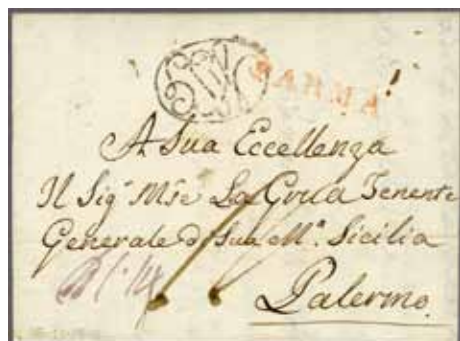 PARMA
A Sua Eccellenza
Il Sigr Mse La Grua Tenente
Generale di Sua Mà. Sicilia
Palermo